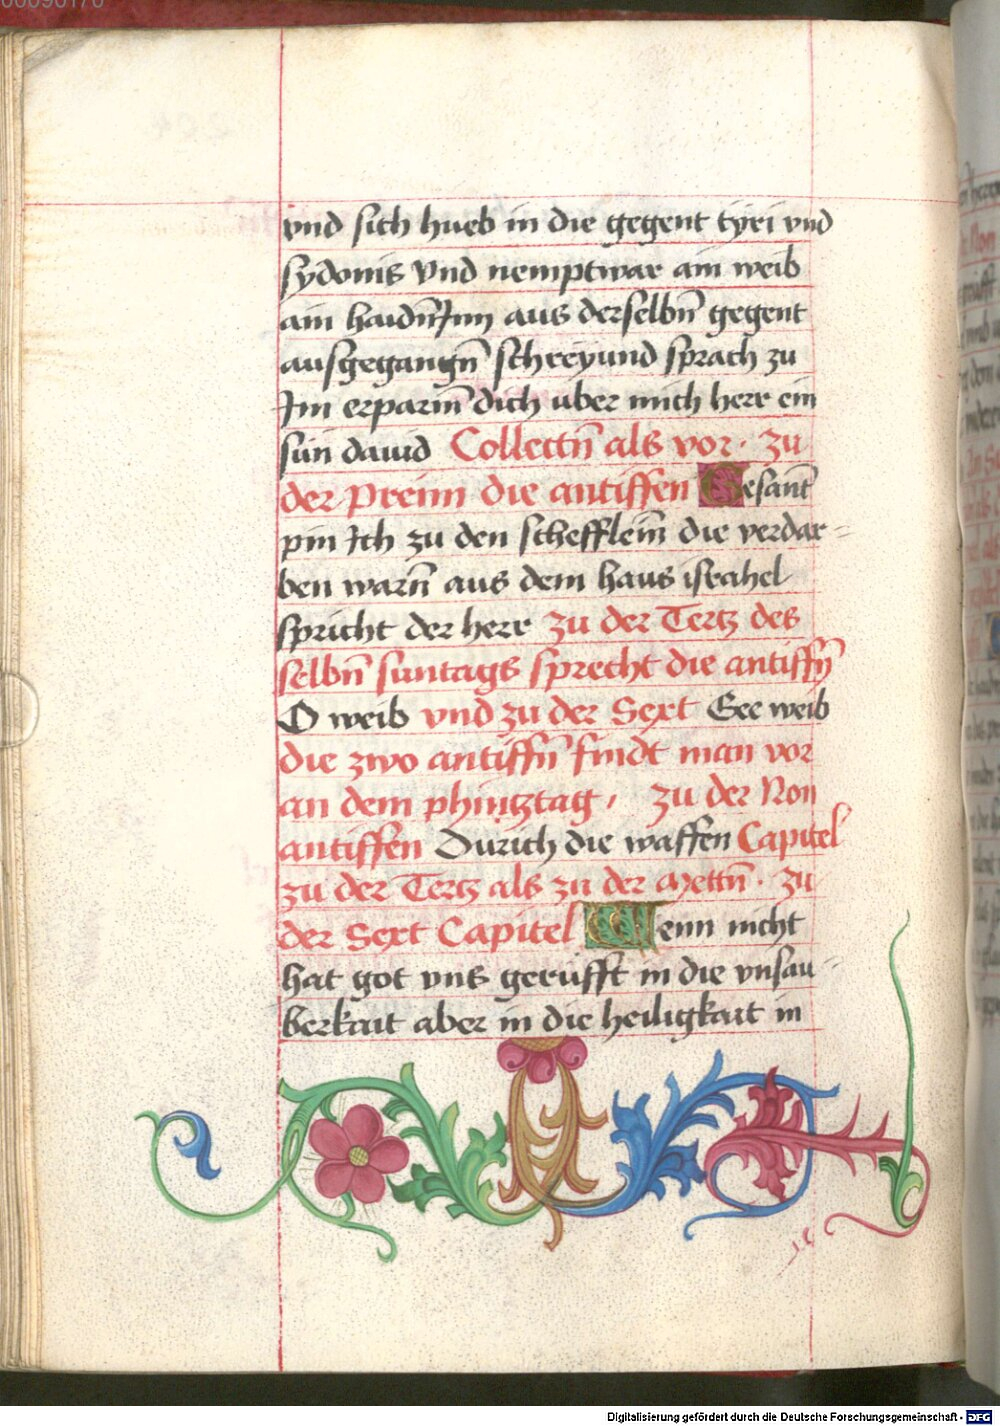 00090170
vnd sich hueb in die gegent tyri vnd
sydonis Vnd nemptwar ain weib
ain haidn̄Inn aus derselbn̄ gegent
ausgegangn̄ schreyund sprach zu
Im erparm̄ dich uber mich herr ein
sún dauid Collectn̄ als vor · zu
der preim die antiffen Gesant̄
pin Ich zu den schefflein̄ die verdar=
ben warn̄ aus dem haus israhel
spricht der herr zu der Tertz des
selbn̄ suntags sprecht die antiffn̄
O weib vnd zu der Sext Gee weib
die zwo antiffn̄ findt man vor
an dem phintztag, zu der Non
antiffen Durich die waffen Capitel
zu der Tertz als zu der mettn̄ · zu
der Sext Capitel Wenn nicht
hat got vns gerúfft in die vnsau=
berkait aber in die heiligkait in
Digitalisierung gefördert durch die Deutsche Forschungsgemeinschaft - DFG